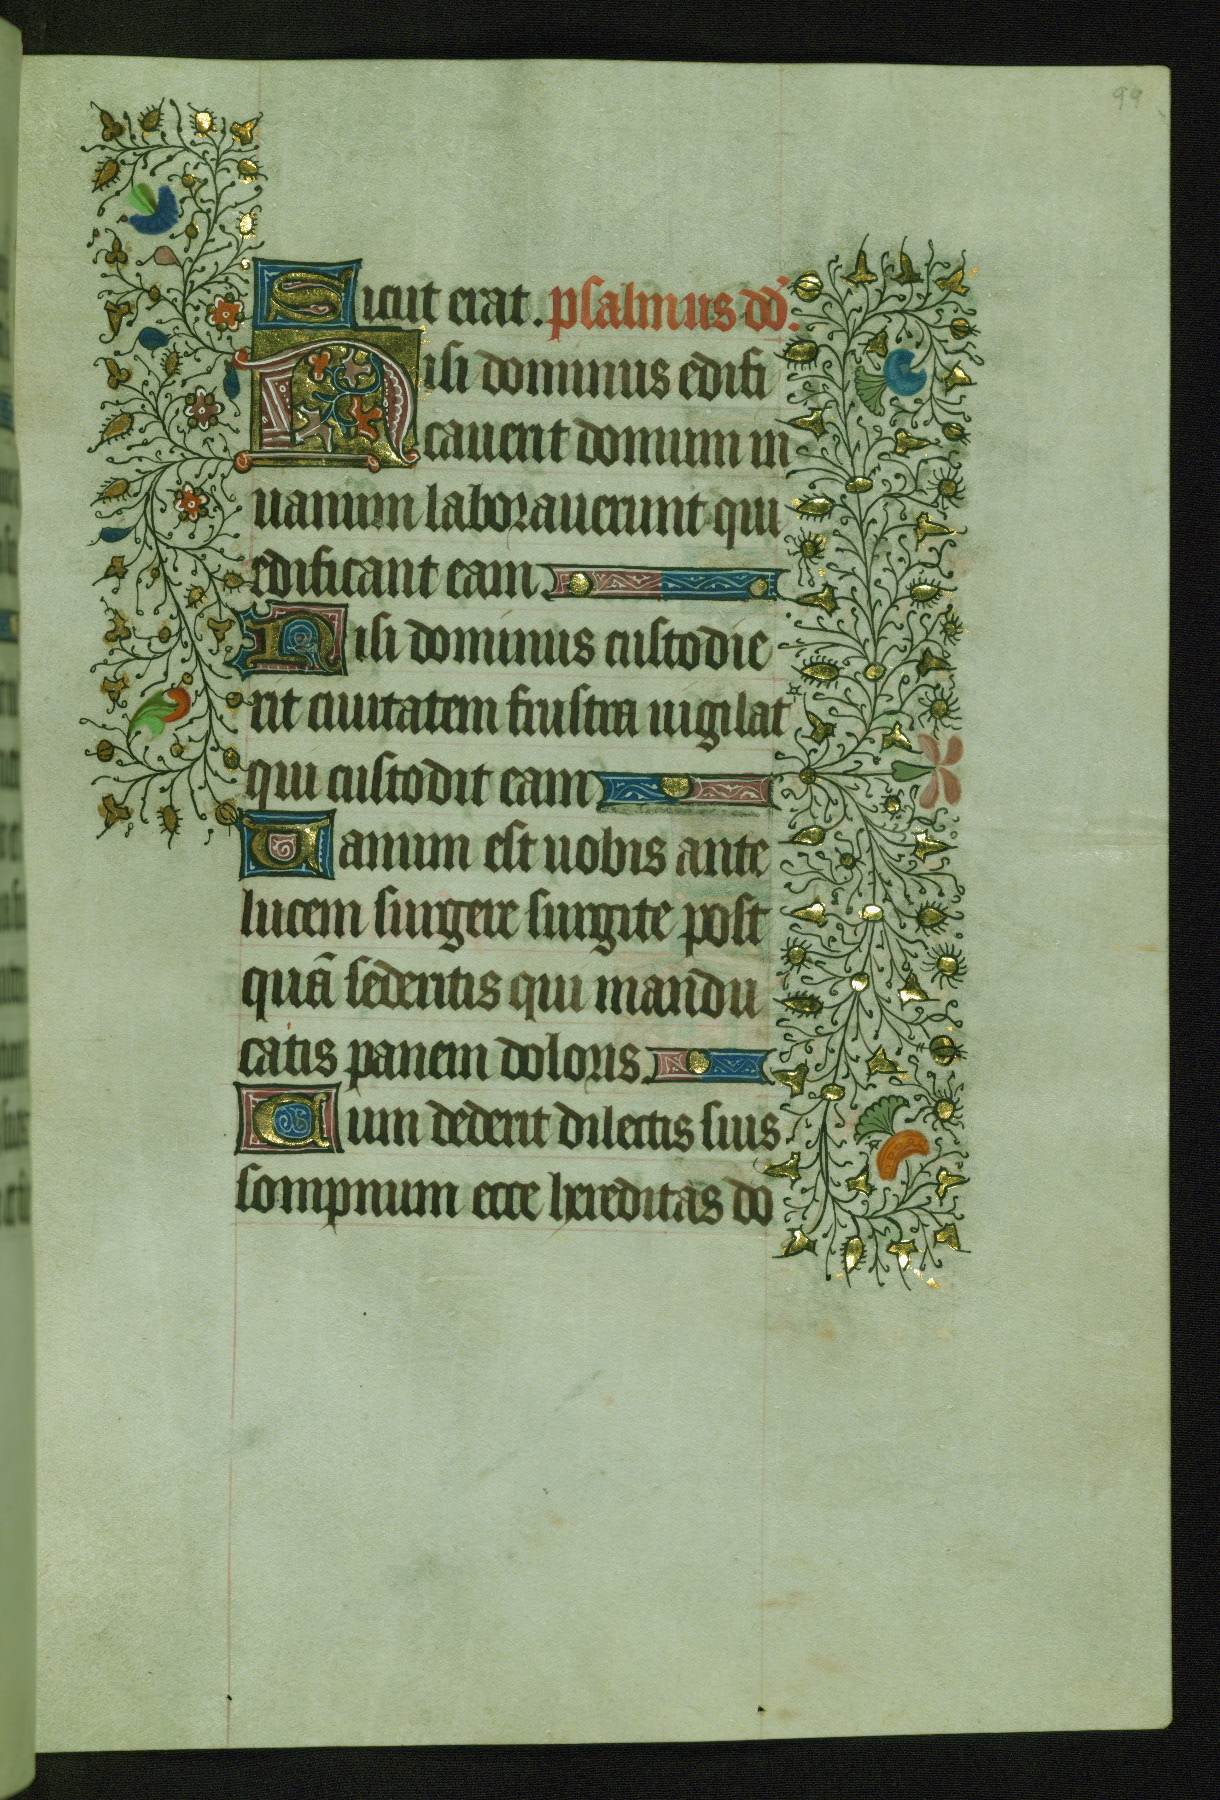 99
Sicut erat. psalmus dd.
Nisi dominus edifi
cauerit domum in
uanum laborauerunt qui
edificant eam
Nisi dominus custodie
rit ciuitatem frustra uigilat
qui custodit eam
Uanum est uobis ante
lucem surgere surgite post
quā sederitis qui mandu
catis panem doloris.
Cum dederit dilectis suis
sompnum ecce hereditas do